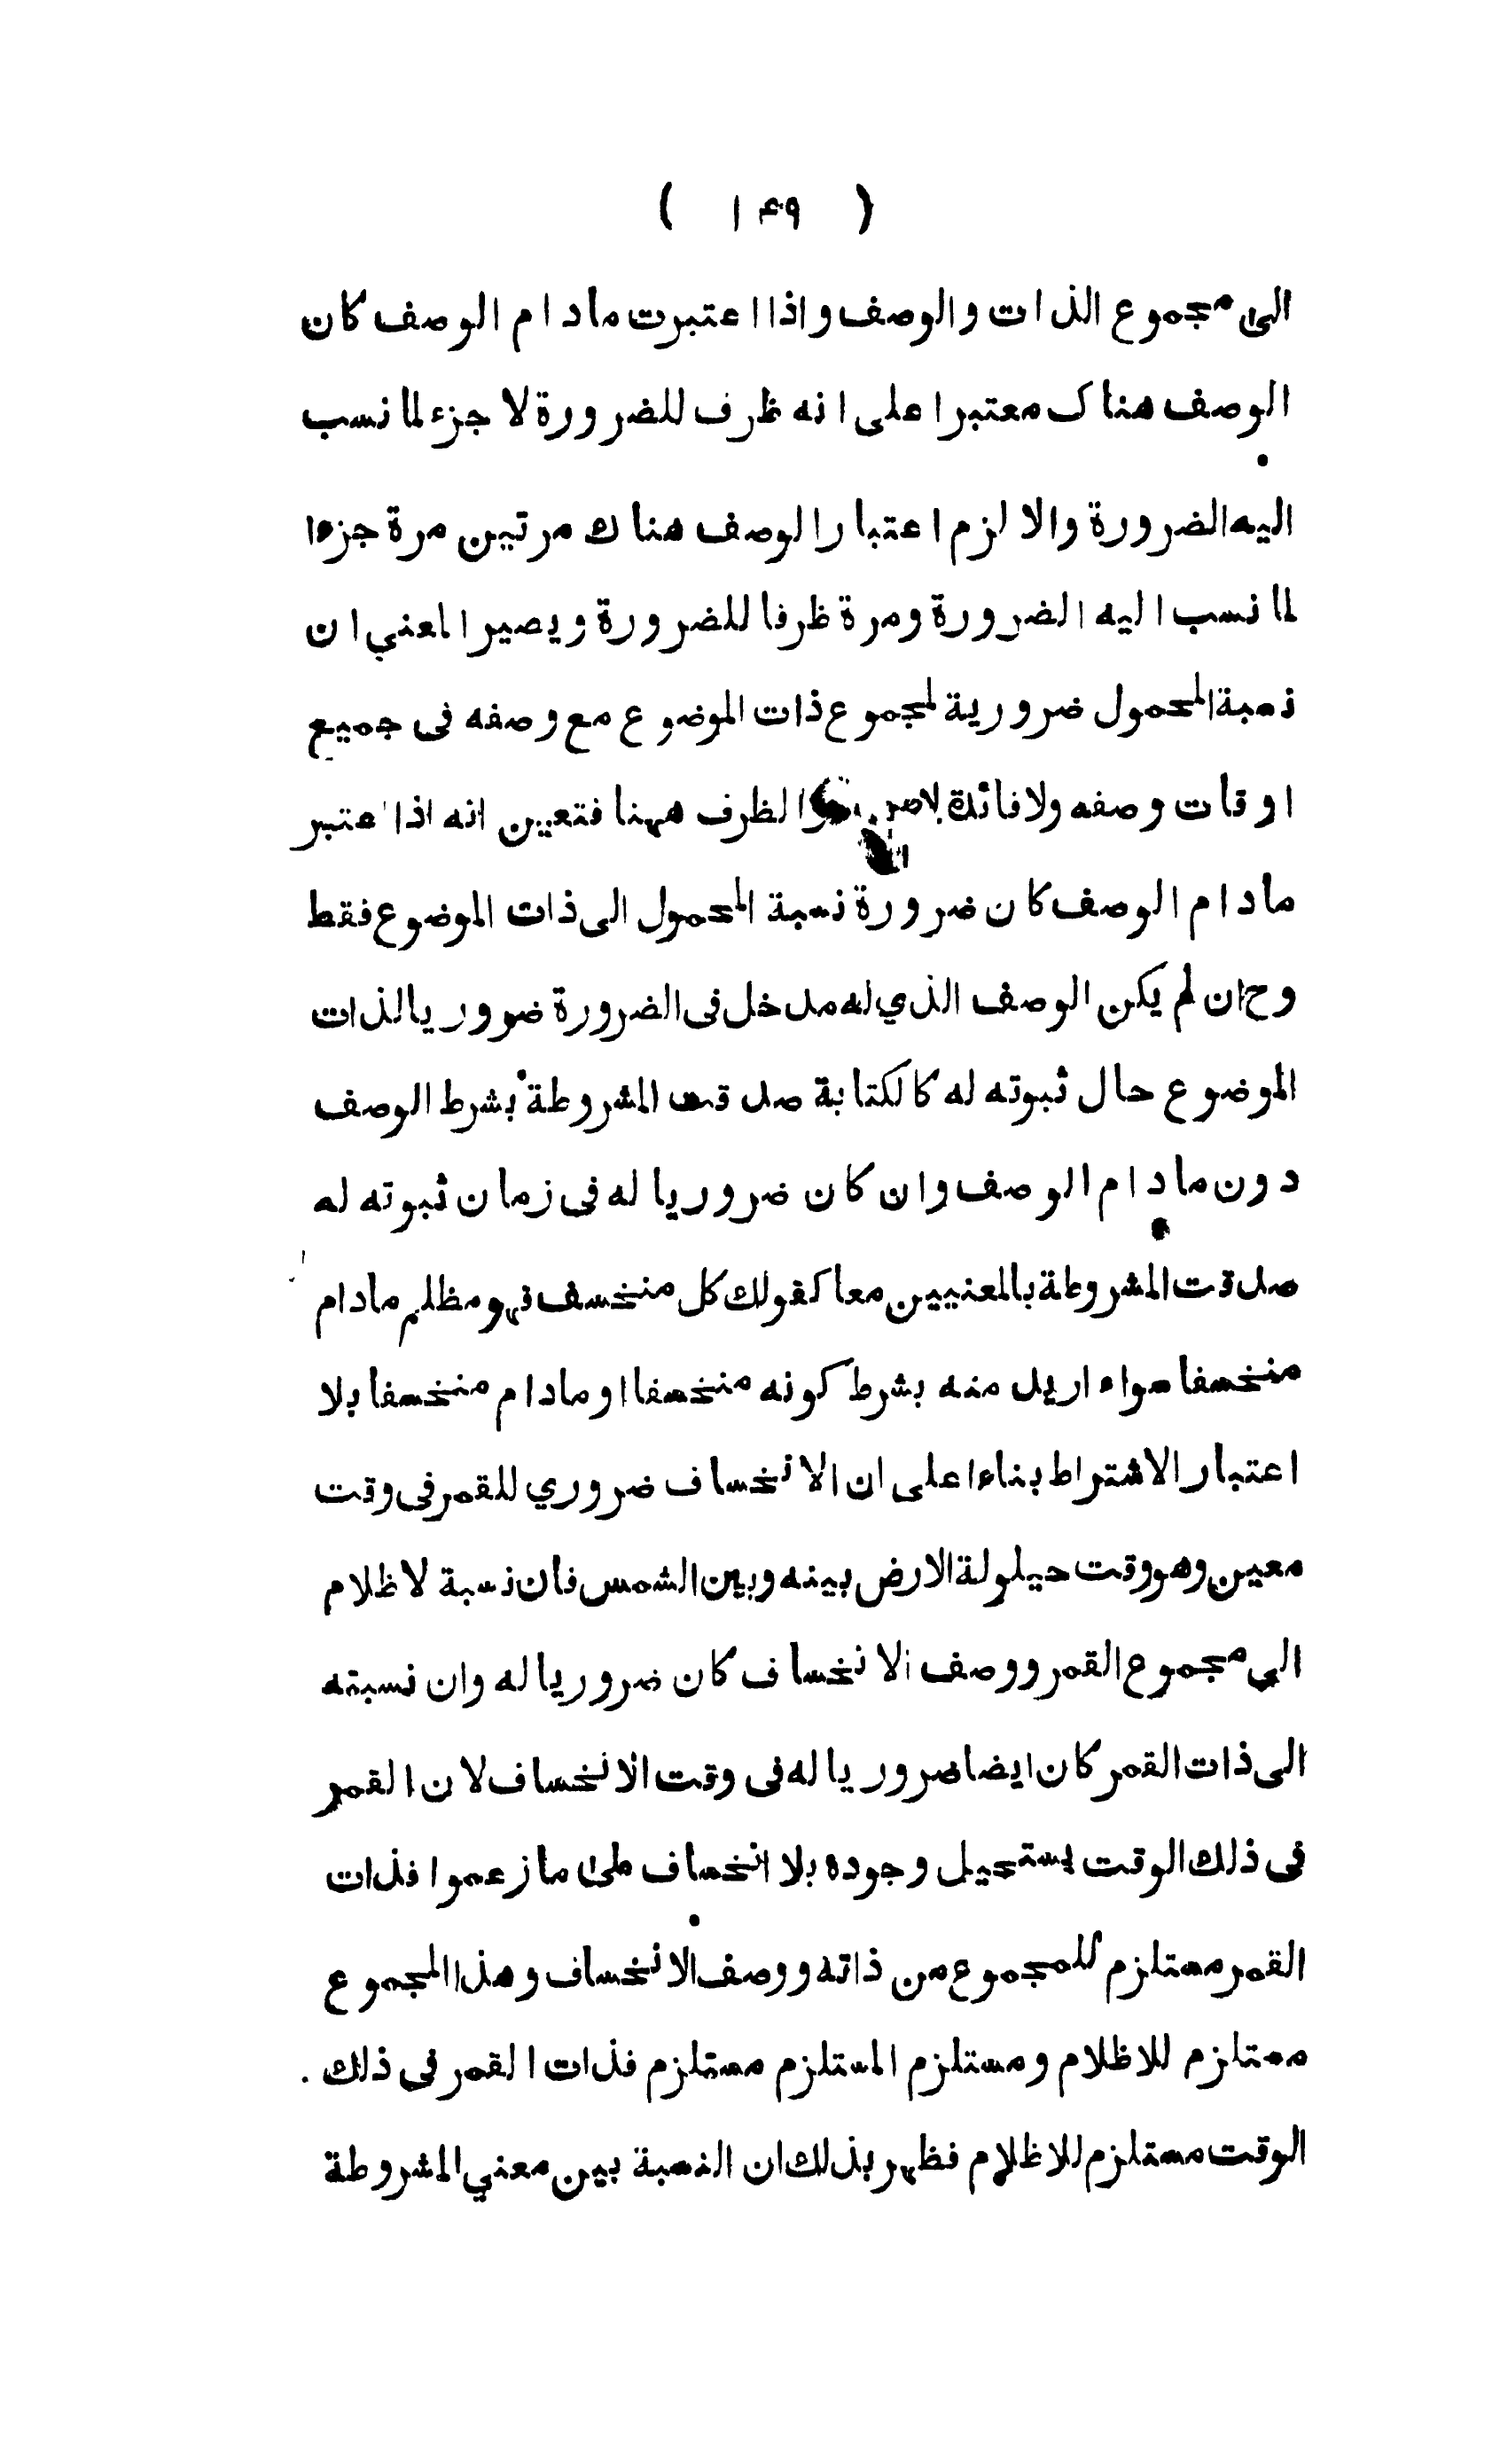 ( ۱۴۹ )
الى مجموع الذات والوصف واذا اعتبرت مادام الوصف كان
الوصف هناك معتبرا على انه ظرف للضرورة لا جزء لما نسب
اليه الضرورة والا لزم اعتبار الوصف هناك مرتين مرة جزءا
لما نسب اليه الضرورة ومرة ظرفا للضرورة ويصير المعني ان
نسبة المحمول ضرورية لمجموع ذات الموضوع مع وصفه فى جميع
اوقات وصفه ولا فائدة الظرف ههنا فتعين انه اذا اعتبر
مادام الوصف كان ضرورة نسبة المحمول الى ذات الموضوع فقط
وح ان لم يكن الوصف الذي له مدخل فى الضرورة ضروريا لذات
الموضوع حال ثبوته له كالكتابة صدقت المشروطة بشرط الوصف
دون مادام الوصف وان كان ضروريا له فى زمان ثبوته له
صدقت المشروطة بالمعنيين معا كقولك كل منخسف فهو مظلم مادام
منخسفا سواء اريد منه بشرط كونه منخسفا او مادام منخسفا بلا
اعتبار الاشتراط بناءا على ان الانخساف ضروري للقمر فى وقت
معين وهو وقت حيلولة الارض بينه وبين الشمس فان نسبة لاظلام
الى مجموع القمر ووصف الانخساف كان ضروريا له وان نسبته
الى ذات القمر كان ايضا ضروريا له فى وقت الانخساف لان القمر
فى ذلك الوقت يستحيل وجوده بلا انخساف على ما زعموا فذات
القمر مستلزم للمجموع من ذاته ووصف الانخساف وهذا المجموع
مستلزم للاظلام ومستلزم المستلزم مستلزم فذات القمر فى ذلك
الوقت مستلزم للاظلام فظهر بذلك ان النسبة بين معني المشروطة